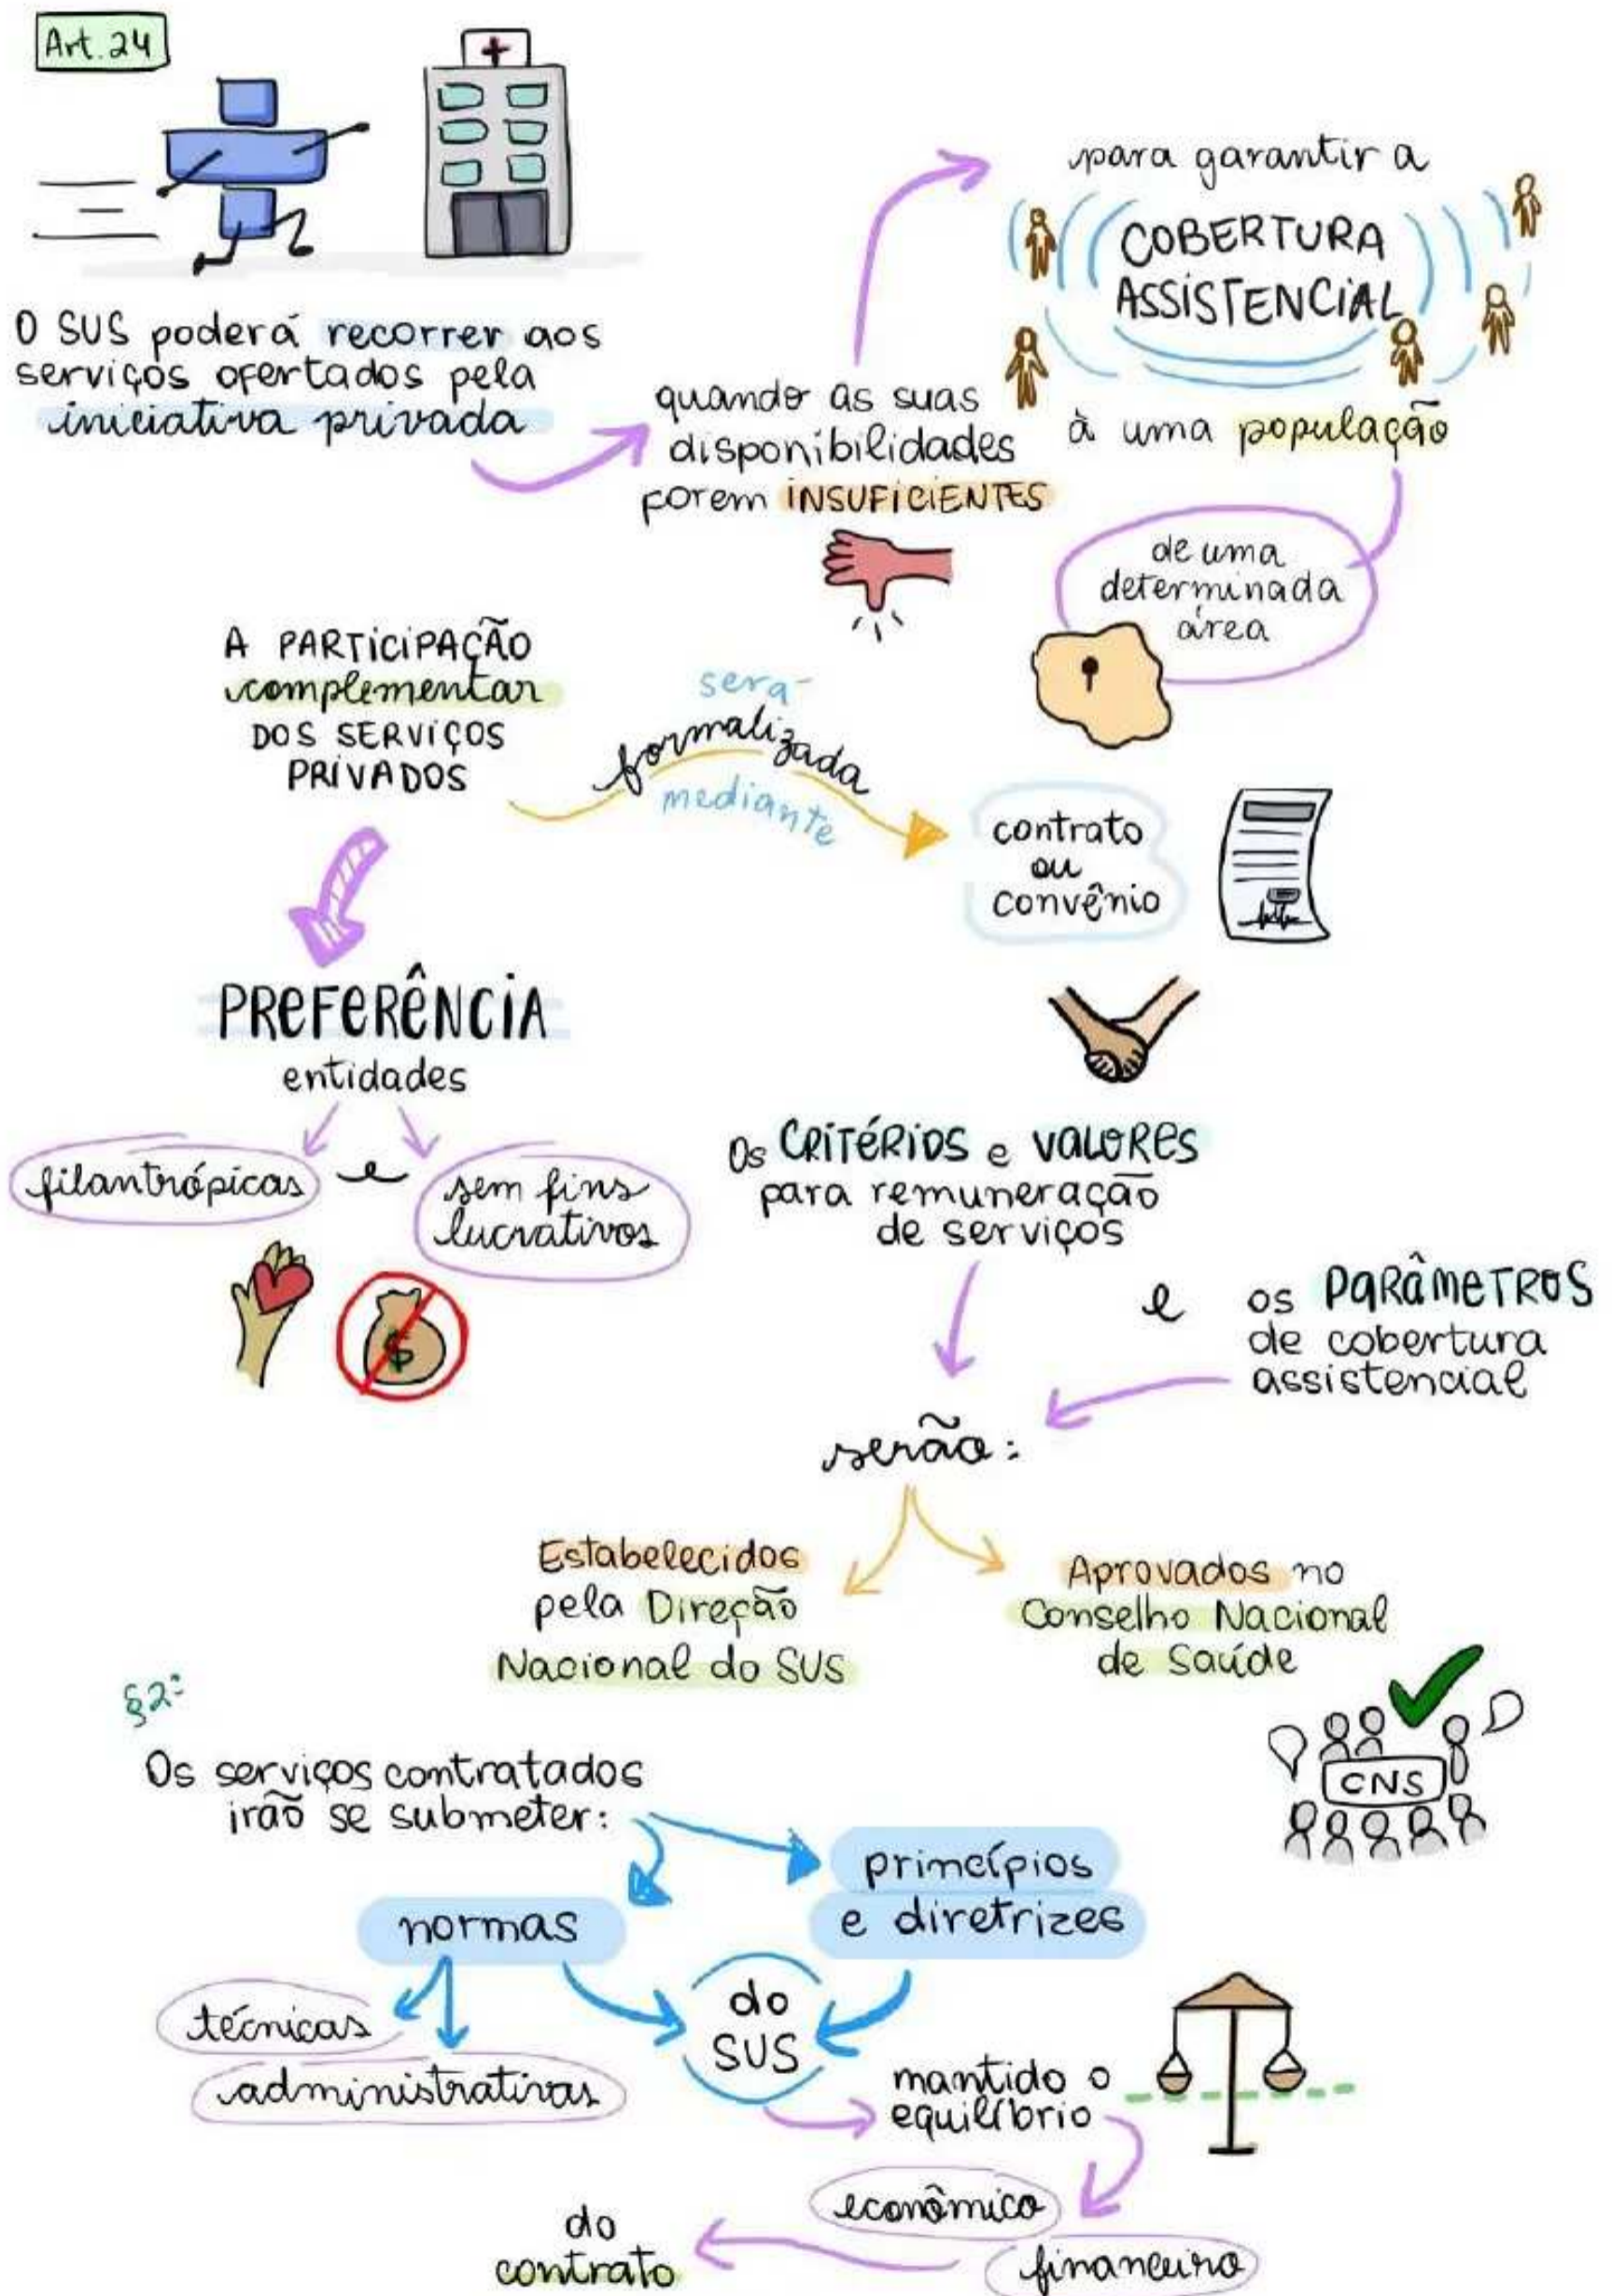 Art. 24
O SUS poderá recorrer aos
serviços ofertados pela
iniciativa privada
quando as suas
disponibilidades
forem INSUFICIENTES
para garantir a
COBERTURA
ASSISTENCIAL
à uma população
de uma
determinada
área
A PARTICIPAÇÃO
complementar
DOS SERVIÇOS
PRIVADOS
será
formalizada
mediante
contrato
ou
convênio
PREFERÊNCIA
entidades
filantrópicas e sem fins
lucrativos
$
Os CRITÉRIOS e VALORES
para remuneração
de serviços
e os PARÂMETROS
de cobertura
assistencial
serão:
Estabelecidos
pela Direção
Nacional do SUS
Aprovados no
Conselho Nacional
de Saúde
CNS
§2º
Os serviços contratados
irão se submeter:
normas
princípios
e diretrizes
técnicas
administrativas
do
SUS
mantido o
equilíbrio
econômico
financeiro
do
contrato